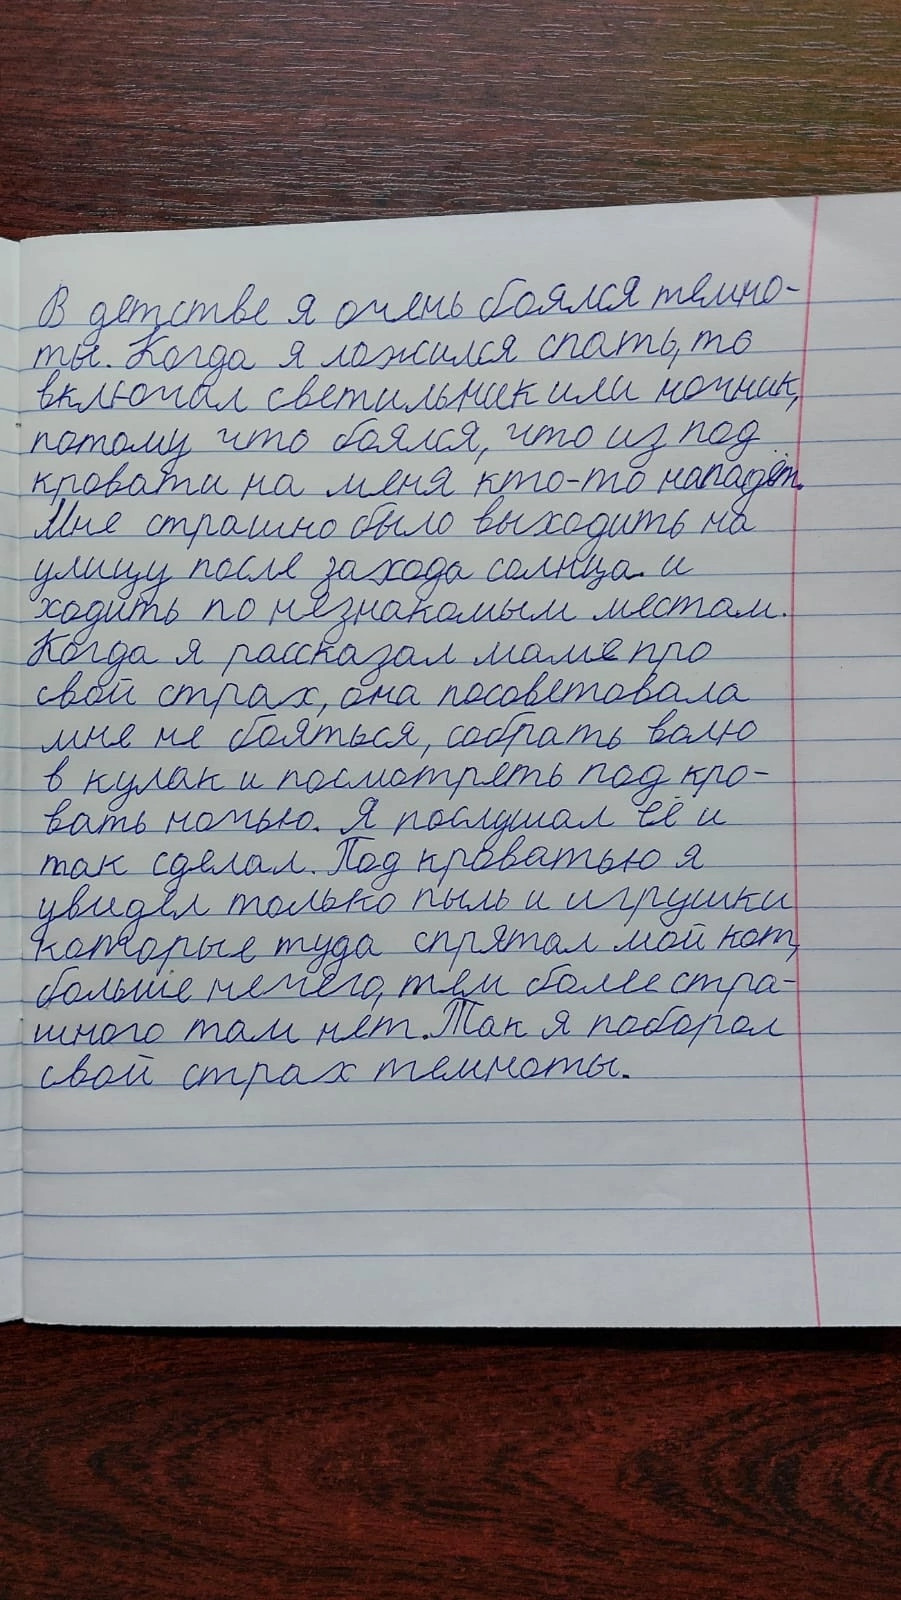 В детстве я очень боялся темно-
ты. Когда я ложился спать, то
включал светильник или ночник,
потому что боялся, что из под
кровати на меня кто-то нападёт.
Мне страшно было выходить на
улицу после захода солнца. и
ходить по незнакомым местам.
Когда я рассказал маме про
свой страх, она посоветовала
мне не бояться, собрать волю
в кулак и посмотреть под кро-
вать ночью. Я послушал её и
так сделал. Под кроватью я
увидел только пыль и игрушки
которые туда спрятал мой кот,
больше нечего, тем более стра-
шного там нет. Так я поборол
свой страх темноты.